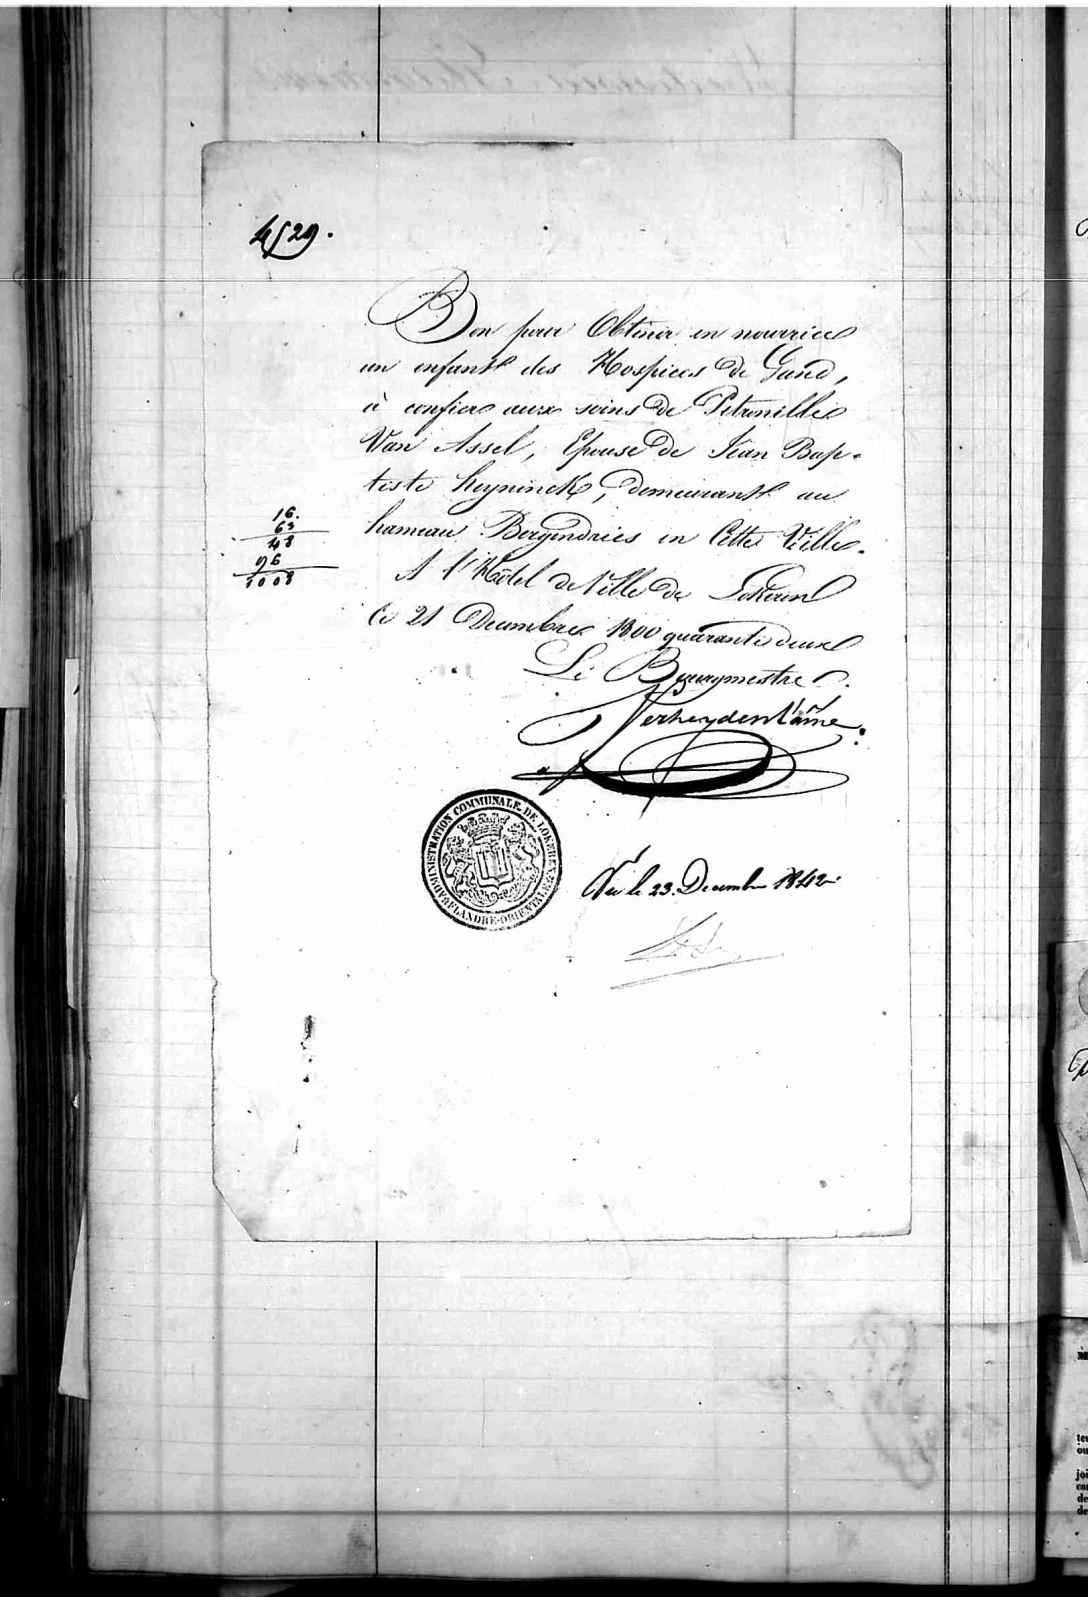 4529.
Bon pour Obtenir en nourrice
un enfant des Hospices de Gand,
à confier aux soins de Pétronille
Van Assel, Epouse de Jean Bap-
tiste Heyninck, demeurant au
hameau Bergendries en Cette Ville.
A l'Hôtel de Ville de Lokeren
le 21 Decembre 1800 quarante deux
Le Bourgmestre
Verheyden l'ainé
16.
63
48
96
1008
ADMINISTRATION COMMUNALE DE LOKEREN
FLANDRE-ORIENTALE
Vu le 23 Decembre 1842